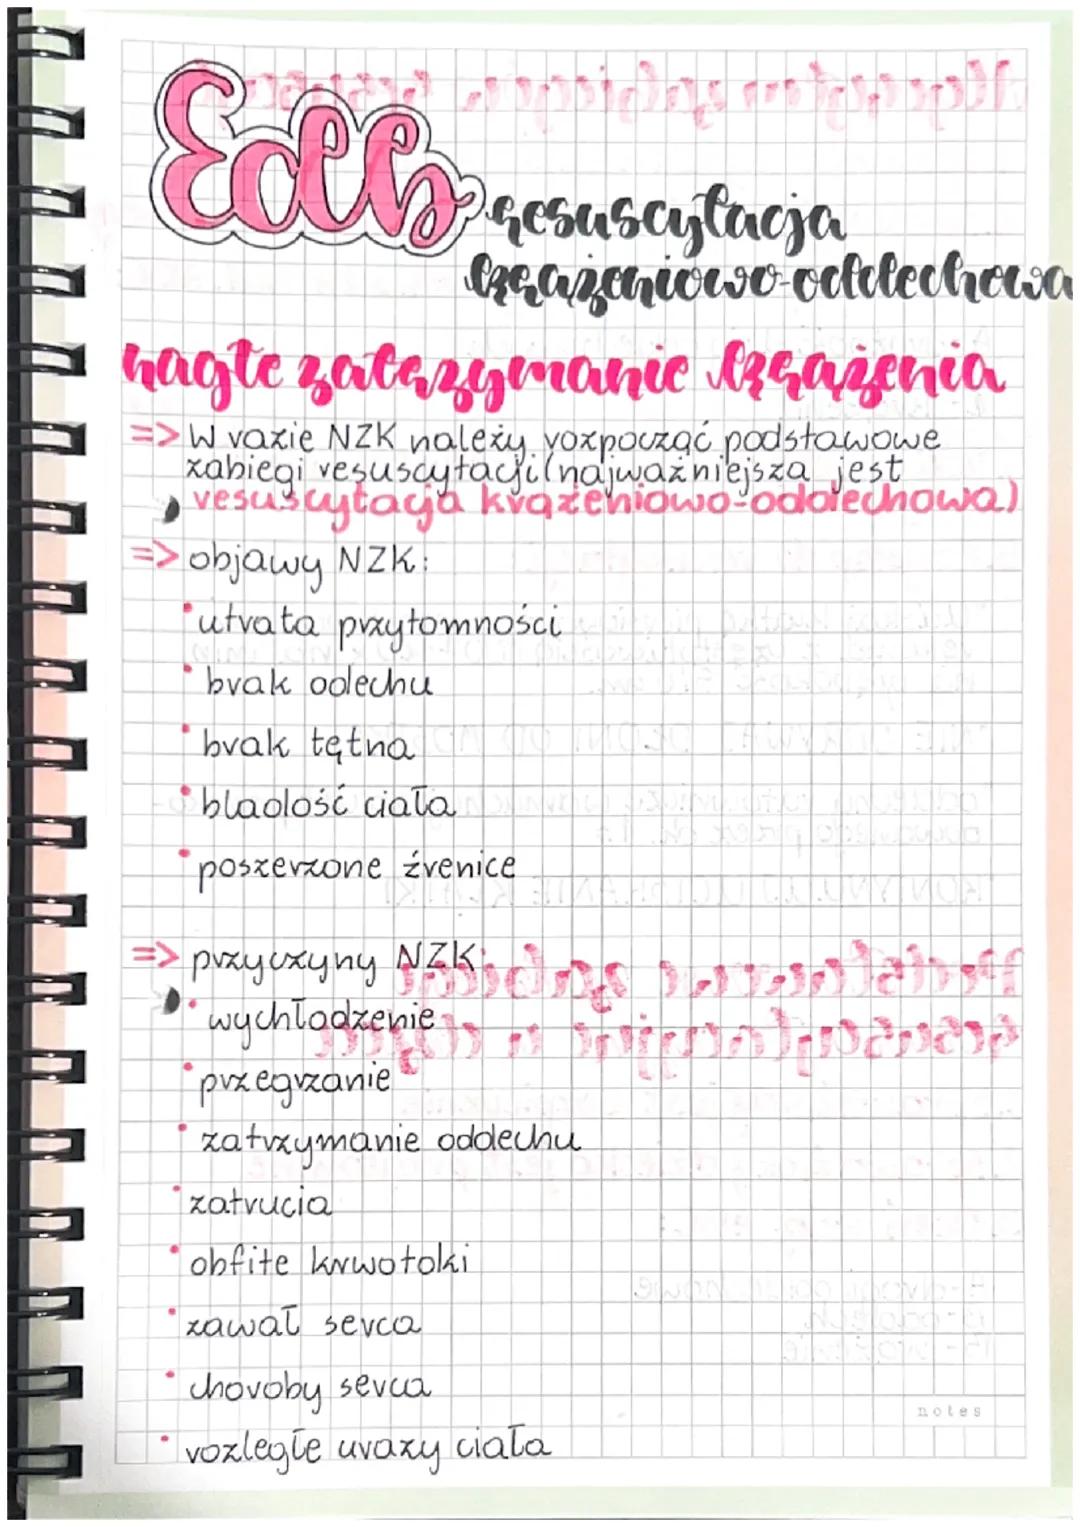 EdB
resuscytacja
krążeniowo-oddechowa
nagłe zatrzymanie krążenia
=> W razie NZK należy rozpocząć podstawowe
zabiegi resuscytacji (najważniejsza jest
resuscytacja krążeniowo-oddechowa)
=> objawy NZK:
• utrata przytomności
• brak oddechu
• brak tętna
• bladość ciała
• poszerzone źrenice
=> przyczyny NZK:
• wychłodzenie
• przegrzanie
• zatrzymanie oddechu
• zatrucia
• obfite krwotoki
• zawał serca
• choroby serca
• rozległe urazy ciała
notes